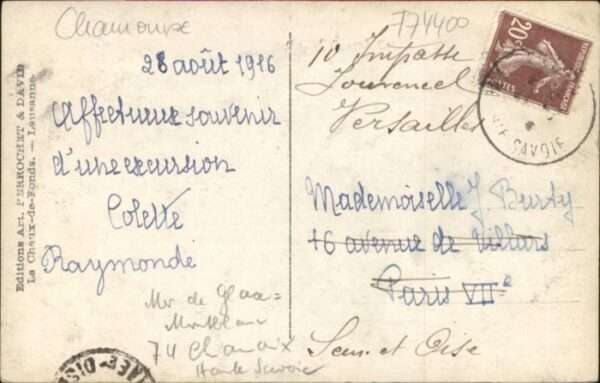 Chamonix
28 août 1916
Affectueux souvenir
d'une excursion
Colette
Raymonde
Mer de Glace =
Montblanc
74 Chamonix
Haute Savoie
Editions Art. PERROCHET & DAVID
La Chaux-de-Fonds. — Lausanne.
T74400
10 Impasse
Versailles
Mademoiselle J. Burty
16 avenue de Villars
Paris VIIe
Seine et Oise
20c
POSTES
TE SAVOIE